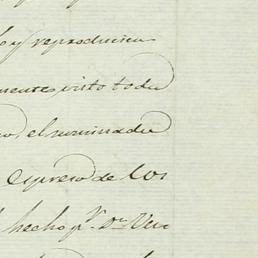 y reproducien
mente visto todu
el nominadu
espreso de los
hecho p.r D.n Ven